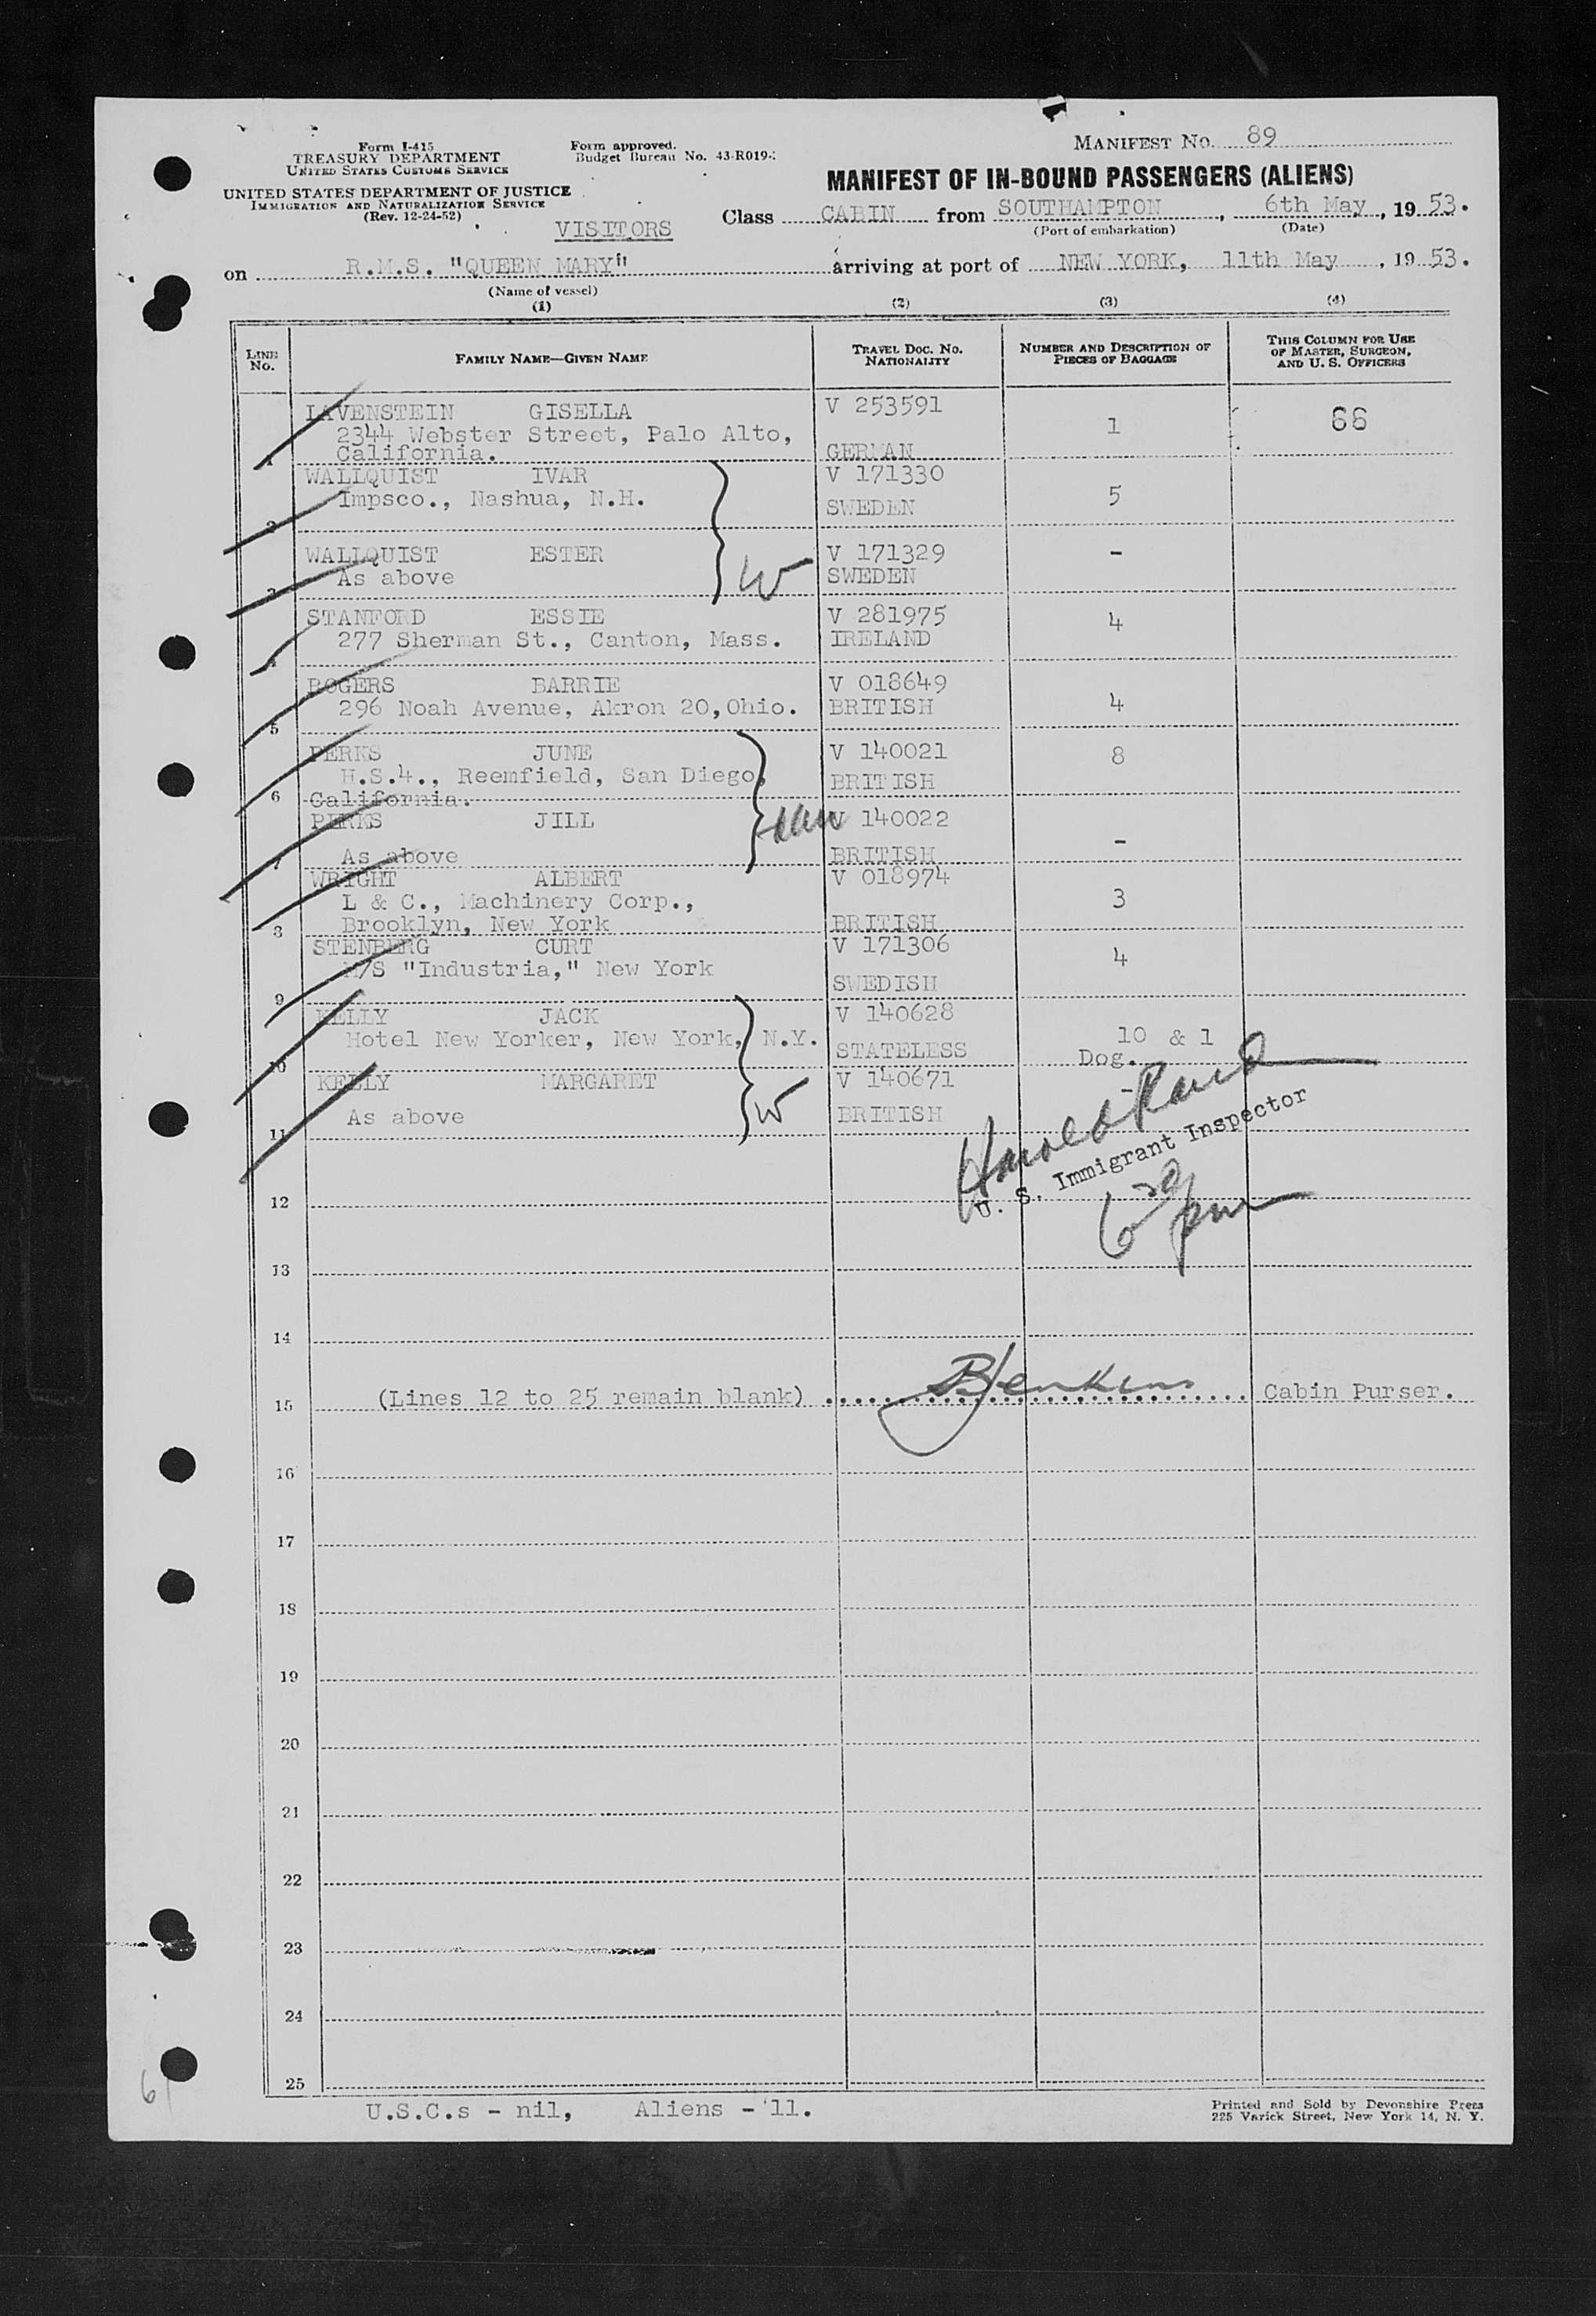 Form I-415
TREASURY DEPARTMENT
UNITED STATES CUSTOMS SERVICE
UNITED STATES DEPARTMENT OF JUSTICE
IMMIGRATION AND NATURALIZATION SERVICE
(Rev. 12-24-52)
Form approved.
Budget Bureau No. 43-R019-
MANIFEST NO. 89
MANIFEST OF IN-BOUND PASSENGERS (ALIENS)
VISITORS
Class CABIN from SOUTHAMPTON, 6th May, 1953.
(Port of embarkation) (Date)
on R.M.S. "QUEEN MARY" arriving at port of NEW YORK, 11th May, 1953.
(Name of vessel)
(1) (2) (3) (4)
LINE No. FAMILY NAME—GIVEN NAME TRAVEL DOC. NO. NATIONALITY NUMBER AND DESCRIPTION OF PIECES OF BAGGAGE THIS COLUMN FOR USE OF MASTER, SURGEON, AND U. S. OFFICERS
LAVENSTEIN GISELLA V 253591
2344 Webster Street, Palo Alto, 1 66
1 California. GERMAN
WALLQUIST IVAR V 171330
Impsco., Nashua, N.H. SWEDEN 5
2
WALLQUIST ESTER V 171329 -
3 As above SWEDEN
W
STANFORD ESSIE V 281975 4
4 277 Sherman St., Canton, Mass. IRELAND
ROGERS BARRIE V 018649
5 296 Noah Avenue, Akron 20, Ohio. BRITISH 4
PERKS JUNE V 140021 8
H.S.4., Reemfield, San Diego, BRITISH
6 California.
PERKS JILL V 140022
7 As above BRITISH -
WRIGHT ALBERT V 018974
L & C., Machinery Corp., 3
8 Brooklyn, New York BRITISH
STENBERG CURT V 171306 4
M/S "Industria," New York SWEDISH
9
KELLY JACK V 140628
Hotel New Yorker, New York, N.Y. STATELESS 10 & 1
10 Dog.
KELLY MARGARET V 140671 -
11 As above BRITISH
W
Harold
U. S. Immigrant Inspector
12
6 30 pm
13
14
15 (Lines 12 to 25 remain blank) BJenkins Cabin Purser.
16
17
18
19
20
21
22
23
24
25
U.S.C.s - nil, Aliens - 11.
Printed and Sold by Devonshire Press
225 Varick Street, New York 14, N. Y.